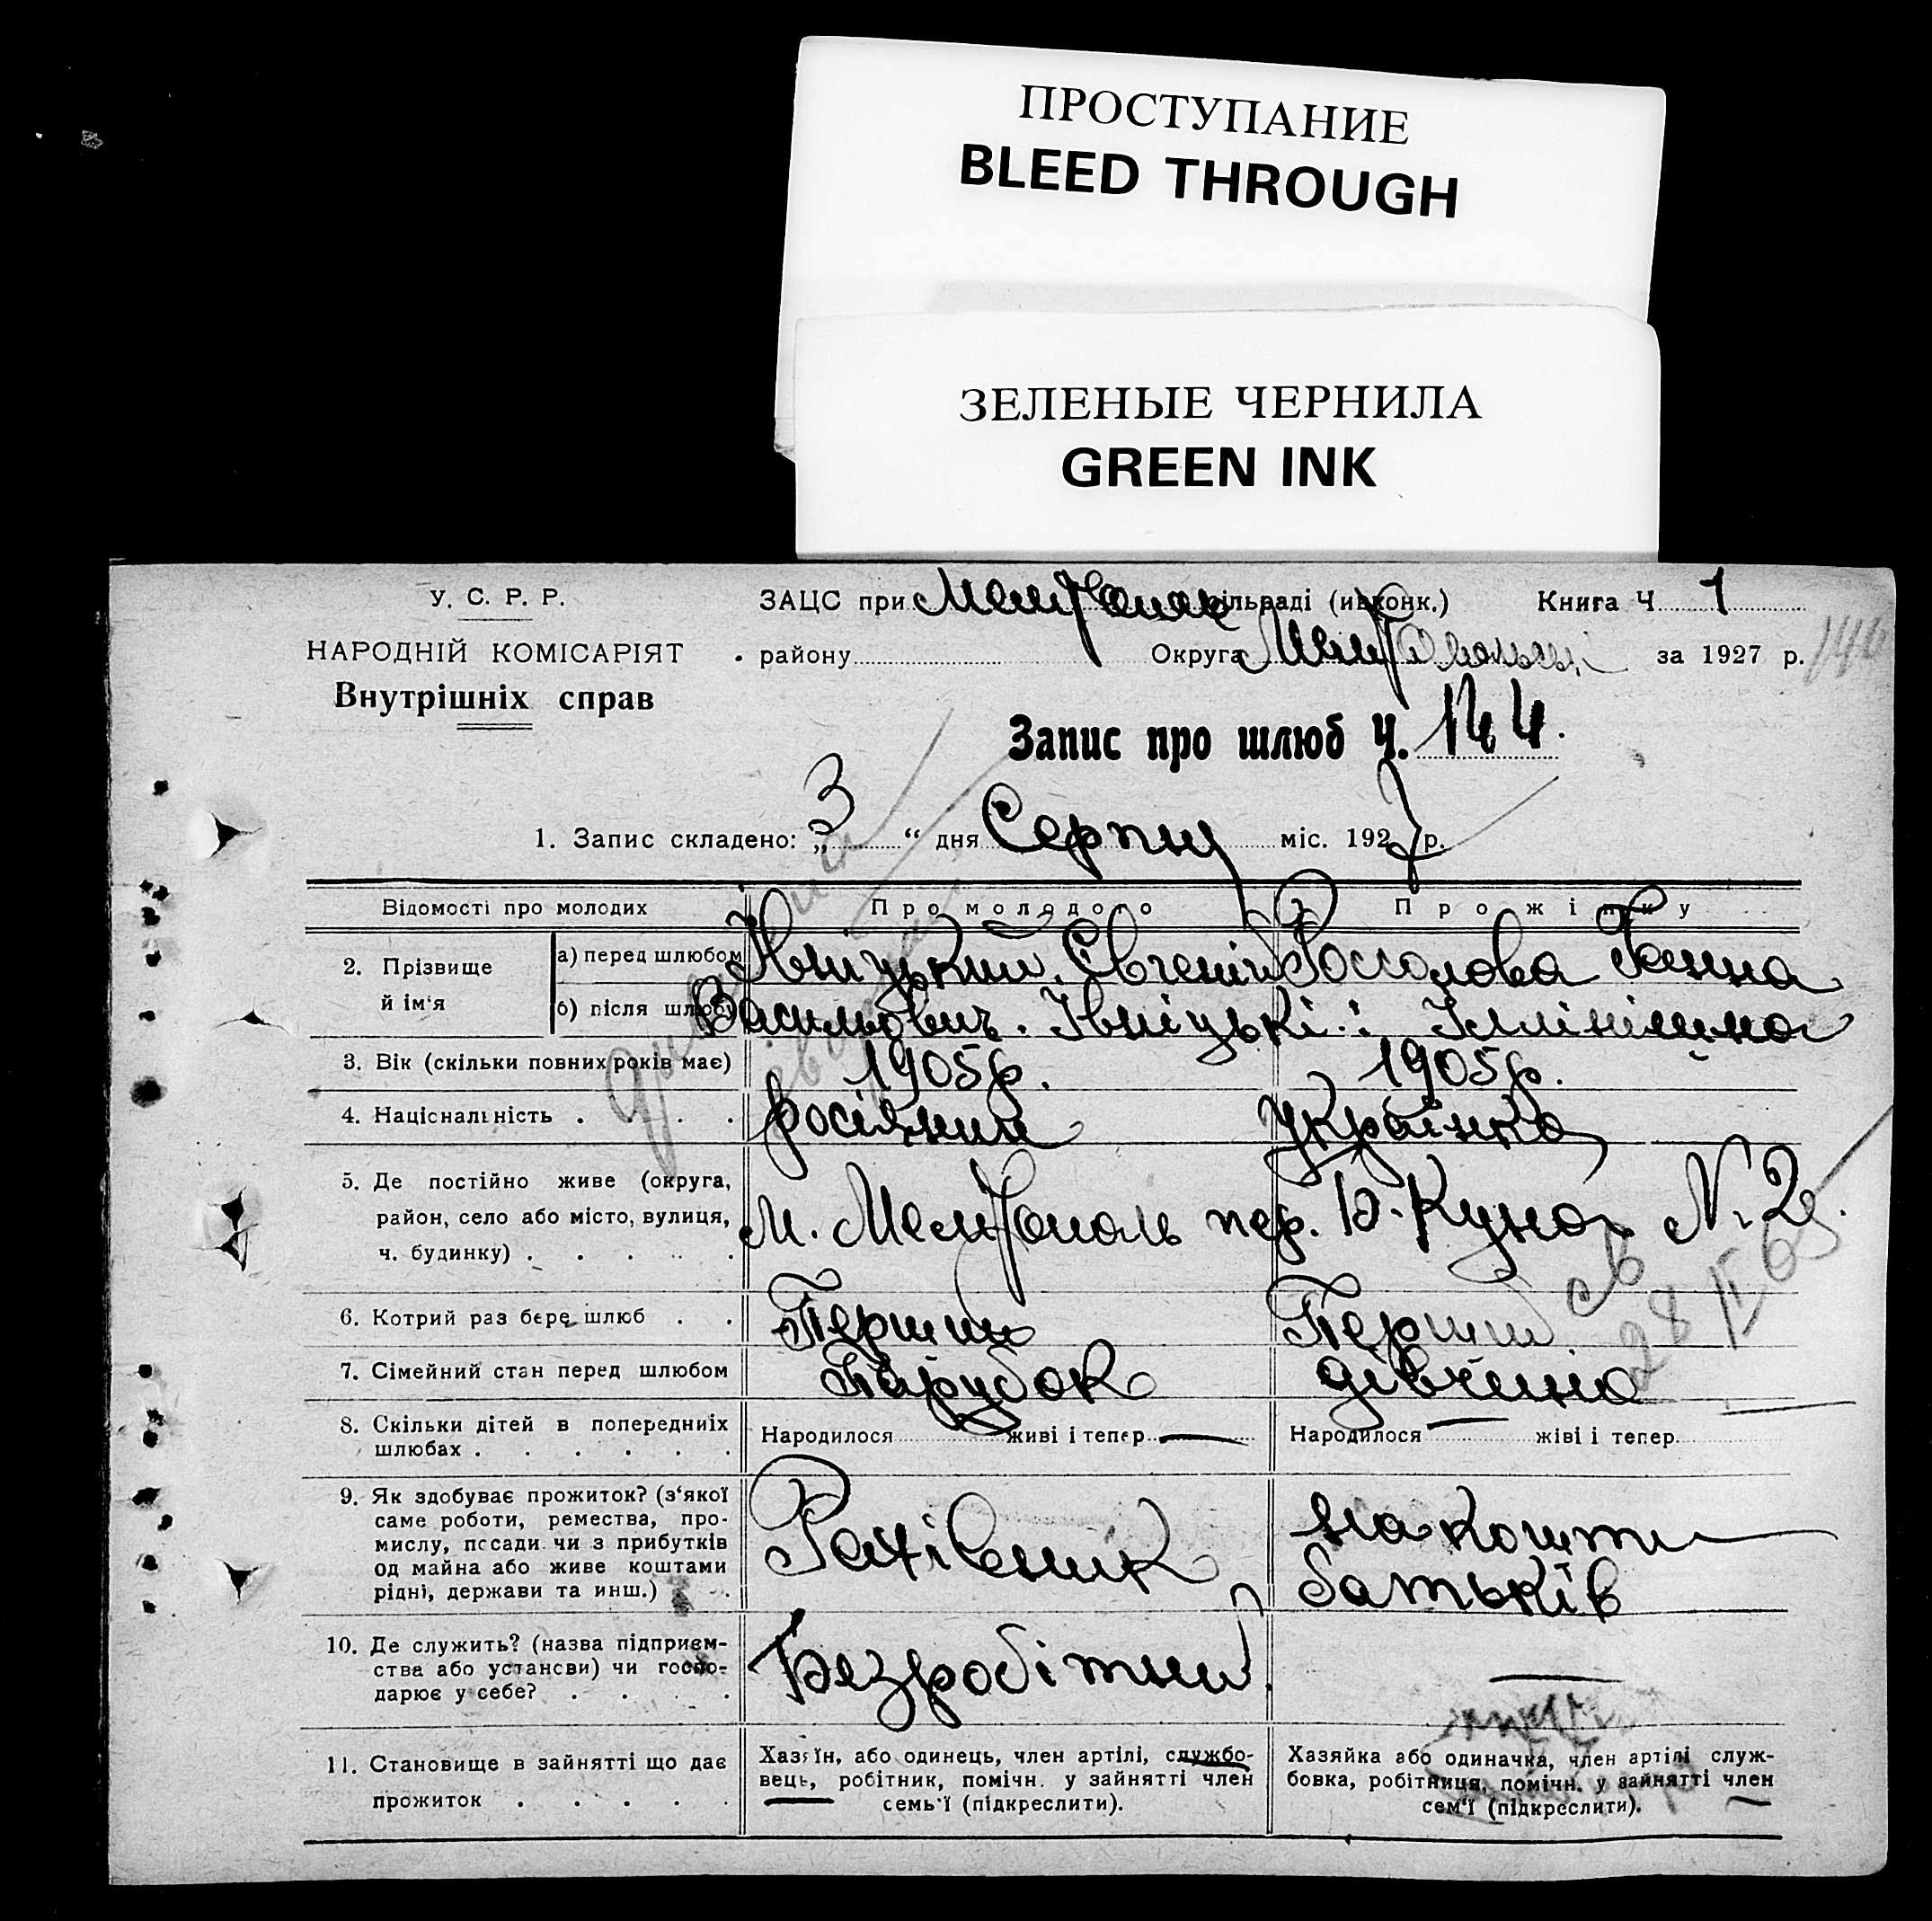 ПРОСТУПАНИЕ
BLEED THROUGH
ЗЕЛЕНЫЕ ЧЕРНИЛА
GREEN INK
У. С. Р. Р.
НАРОДНІЙ КОМІСАРІЯТ
Внутрішніх справ
ЗАЦС при сільраді (ивконк.) Книга Ч. 1
району Округа за 1927 р.
Запис про шлюб Ч. 144.
1. Запис складено: „3“ дня Серпня міс. 1927 р.
Відомості про молодих Про молодого Про жінку
2. Прізвище й ім‘я
а) перед шлюбом Івніцький Євгеній Россолова Ганна
б) після шлюбу Васильович. Івніцькі.
3. Вік (скільки повних років має) 1905р. 1905р.
4. Національність . . . . росіянин українка
5. Де постійно живе (округа,
район, село або місто, вулиця,
ч. будинку) . . . . .
м. Мелітополь пер. Б. Куна № 2
6. Котрий раз бере шлюб . . Перший Перший
7. Сімейний стан перед шлюбом Парубок дівчина
8. Скільки дітей в попередниіх
шлюбах . . . . . .
Народилося живі і тепер — Народилося — жіві і тепер
9. Як здобуває прожиток? (з‘якої
саме роботи, ремества, про-
мислу, посади чи з прибутків
од майна або живе коштами
рідні, держави та инш.) . .
Рахівник
на кошти
батьків
10. Де служить? (назва підприєм-
ства або установи) чи госпо-
дарює у себе? . . . .
Безробітний. —
11. Становище в зайнятті що дає
прожиток . . . . .
Хазяїн, або одинець, член артілі, службо-
вець, робітник, помічн. у зайнятті член
семь‘ї (підкреслити).
Хазяйка або одиначка, член артілі служ-
бовка, робітниця, помічн. у зайнятті член
сем‘ї (підкреслити).